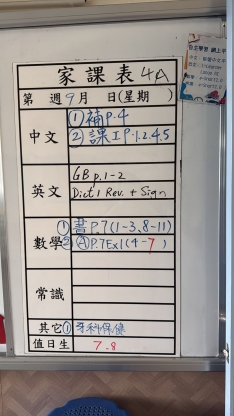 家課表 4A
第 週 9月 日(星期 )
中文
①補P.4
②課工P.1.2.4.5
英文
GB p.1-2
Dict 1 Rev. + Sign
數學
①書P.7(1-3,8-11)
②ⒶP.7Ex1(4-7)
常識
其它 ①牙科保健
值日生 7.8
自主學習 網上平